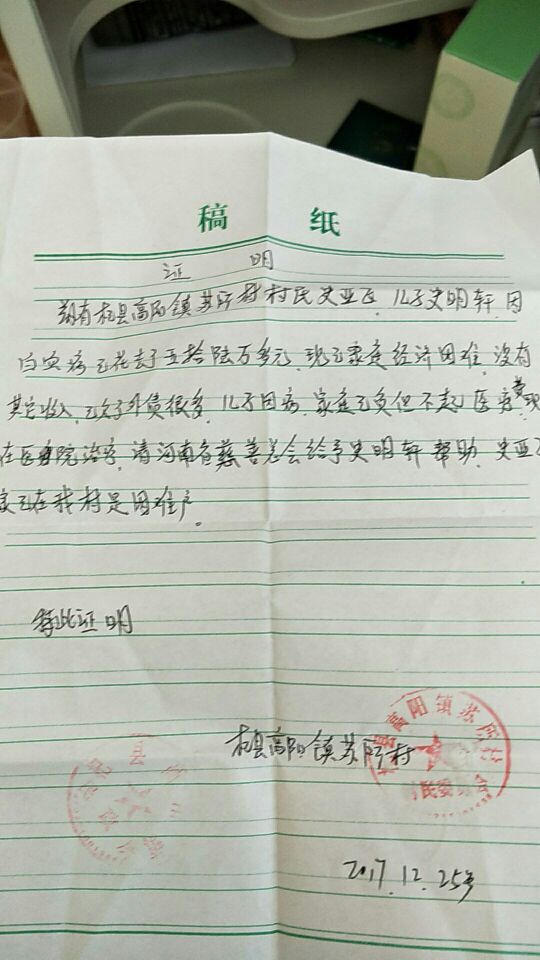 稿 纸
证 明
兹有杞县高阳镇苏所村村民史亚飞，儿子史明轩，因
白血病已花去了五拾陆万多元，现已家庭经济困难，没有
其它收入，已欠了外债很多，儿子因病，家庭已负但不起医疗费，现
在医院治疗，请河南省慈善总会给予史明轩帮助，史亚飞
家已在我村是困难户。
特此证明
杞县高阳镇苏所村
杞县高阳镇苏所村
村民委
2017.12.25号